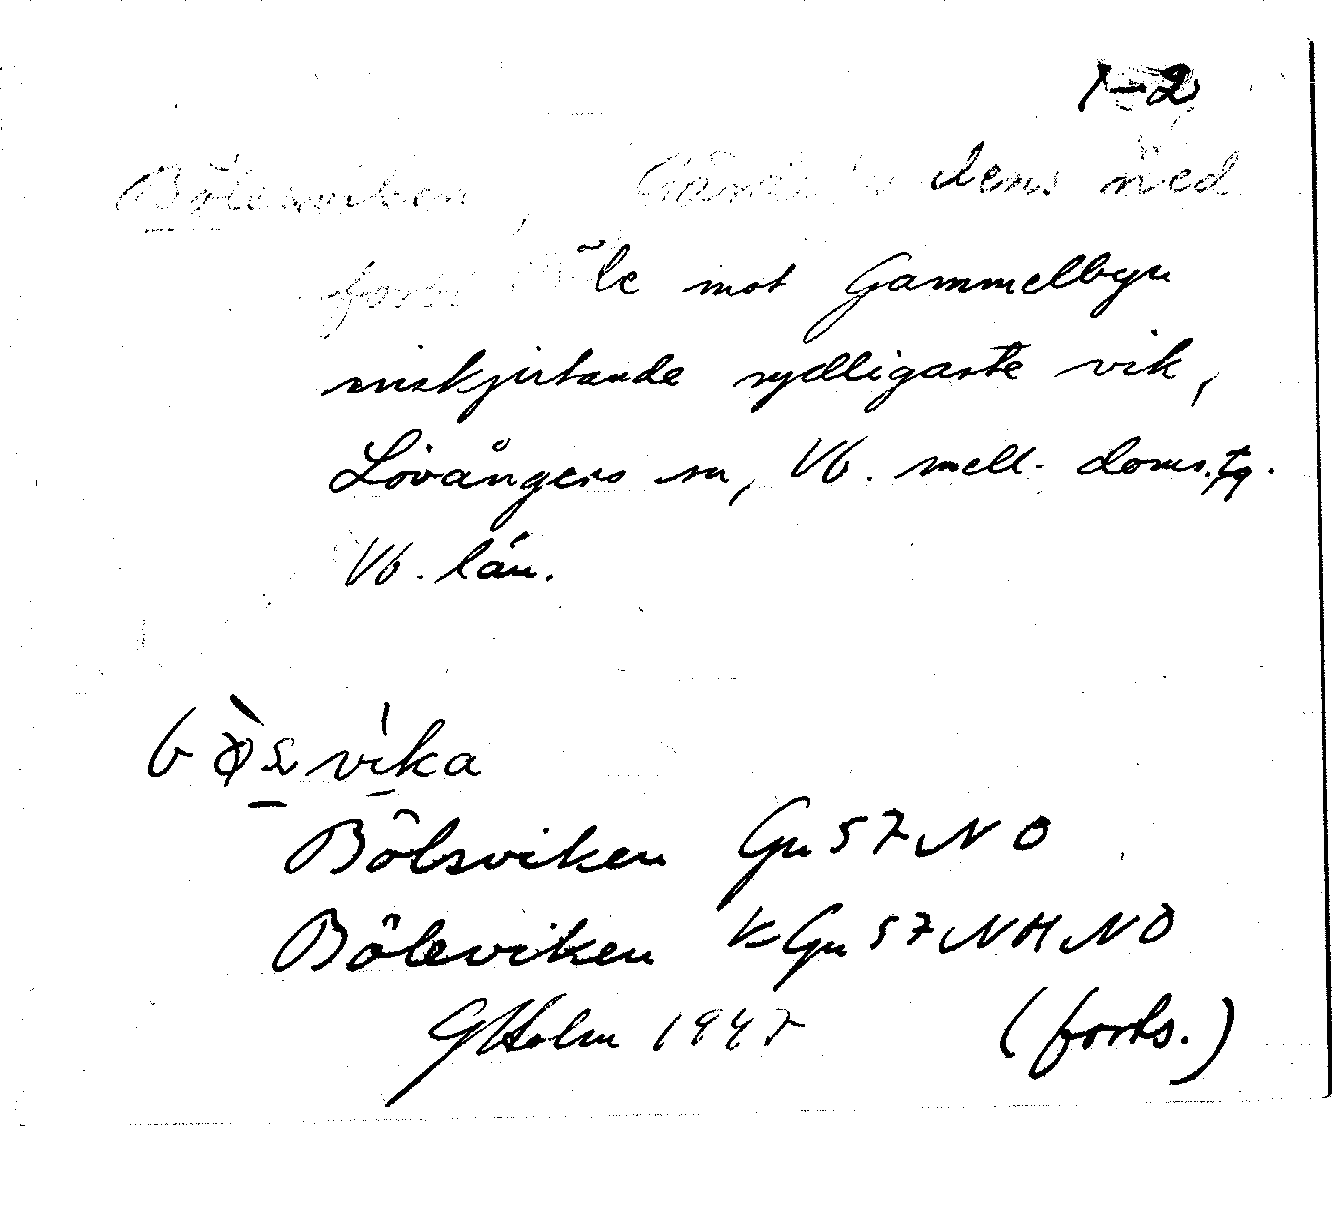 1–2
Böleviken, dens ned
för le mot Gammelbyn
inskjutande sydligaste vik,
Lövångers sn, Vb. mell. doms.tg.
Vb. län.
Bölsviken Gu 57 NO
Böleviken KGu 57 NH NO
GHolm 1947 (forts.)